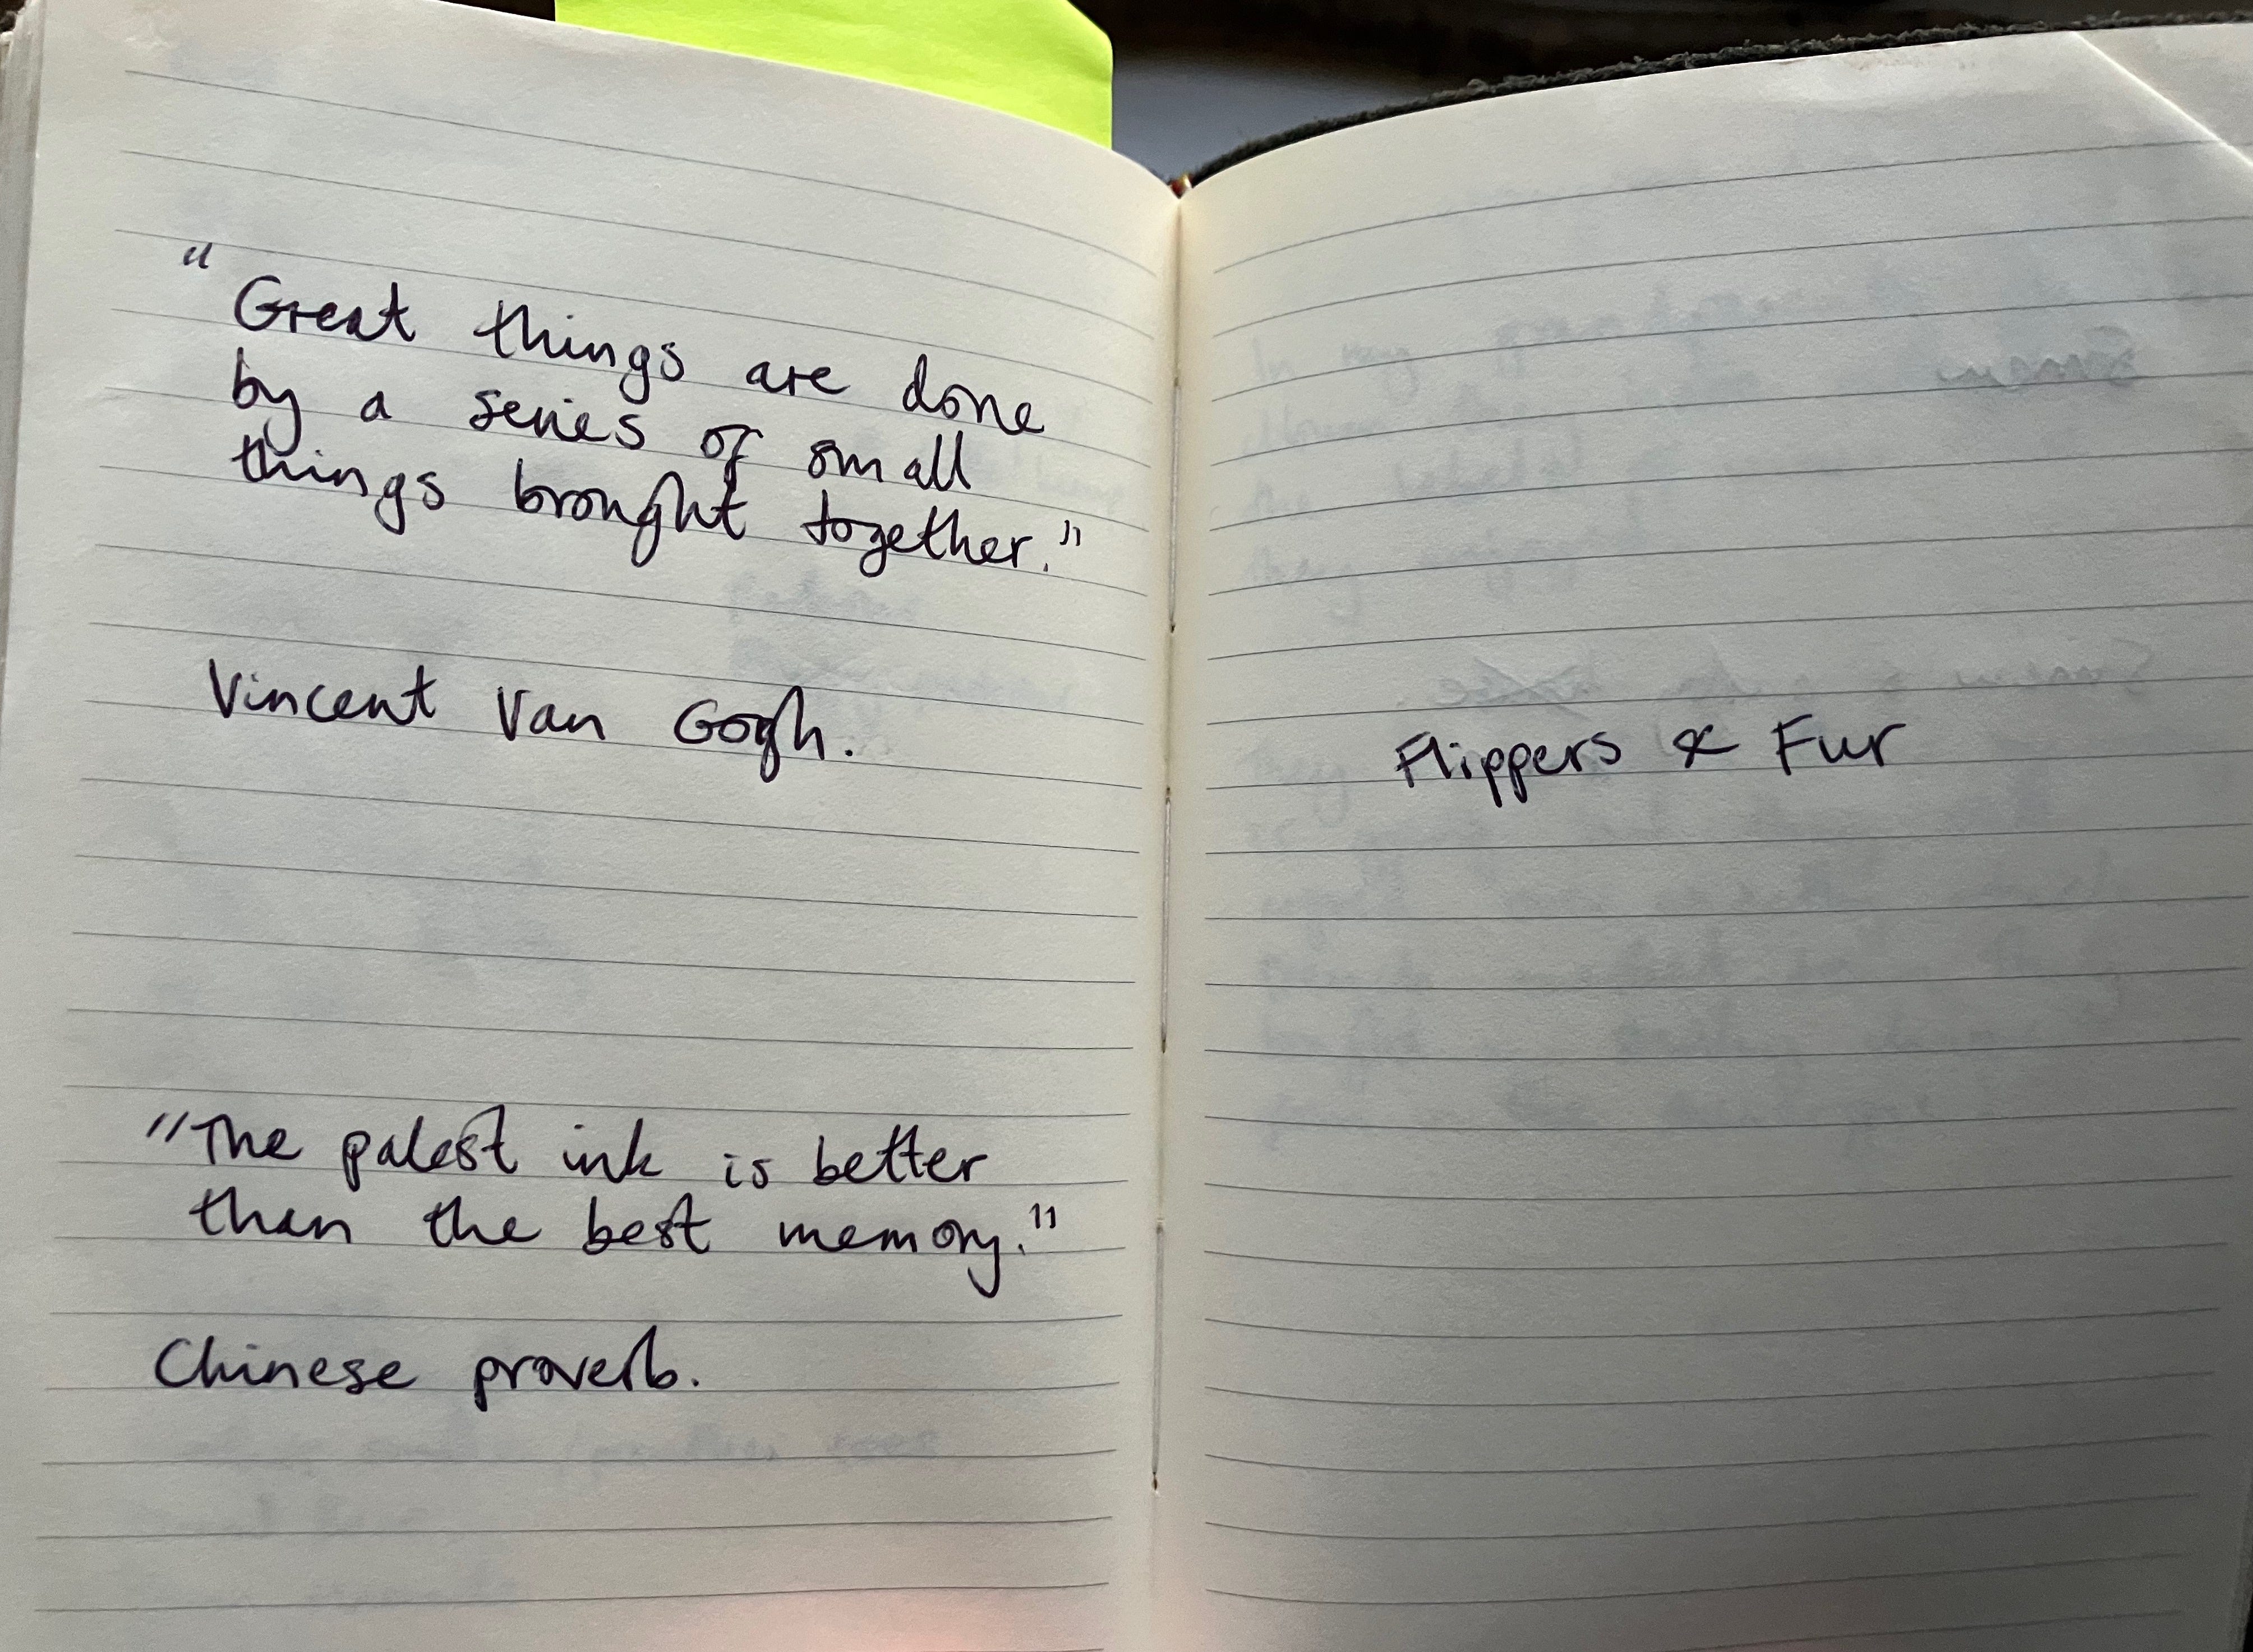 "Great things are done
by a series of small
things brought together."
Vincent Van Gogh.
"The palest ink is better
than the best memory."
Chinese proverb.
Flippers & Fur